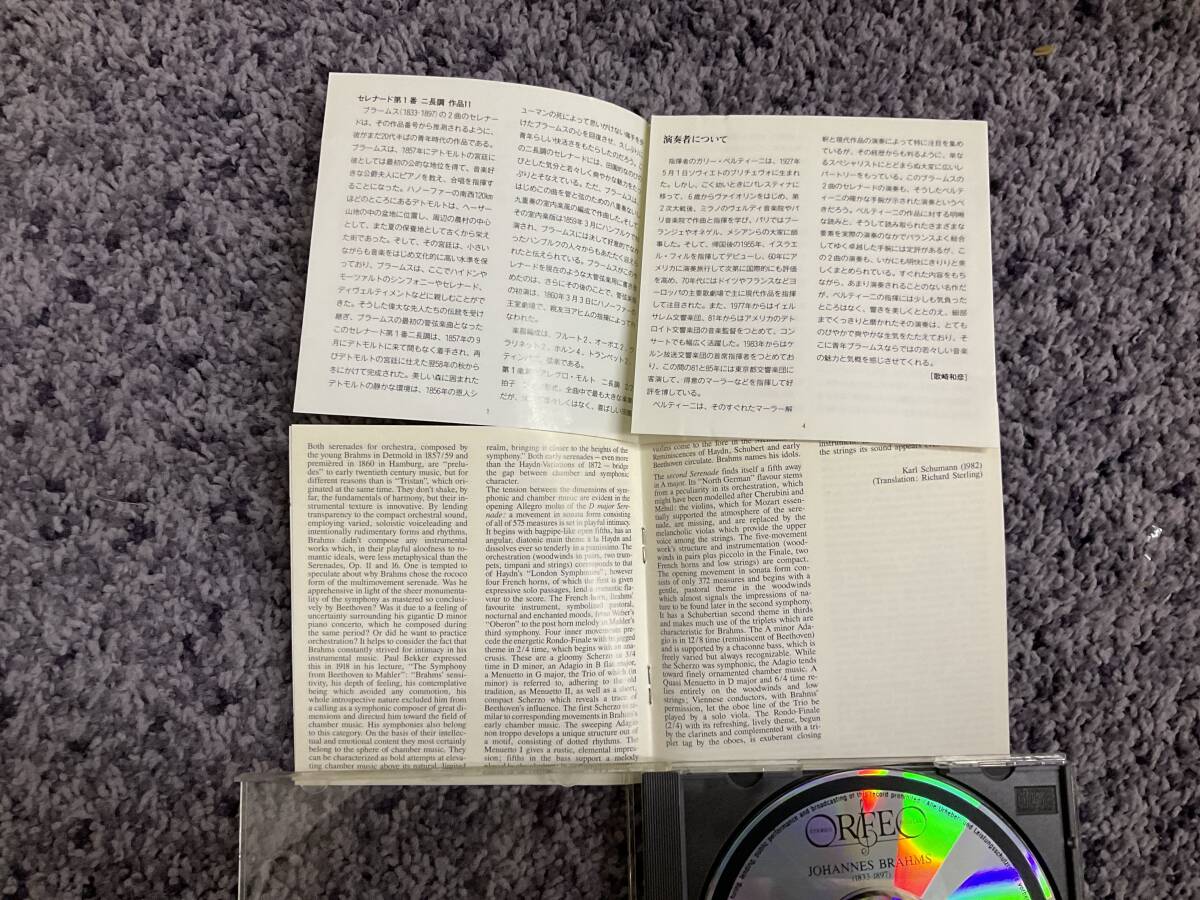 セレナード第1番 ニ長調 作品11
ブラームス(1833-1897)の2曲のセレナー
ドは、その作品番号から推測されるように、
彼がまだ20代半ばの青年時代の作品である。
ブラームスは、1857年にデトモルトの宮廷に
後としては最初の公的な地位を得て、音楽好
きな公爵夫人にピアノを教え、合唱を指揮す
ることになった。ハノーファーの南西120km
ほどのところにあるデトモルトは、ヘーザー
山地の中の盆地に位置し、周辺の農村の中心
として、また夏の保養地として古くから栄え
た街であった。そして、その宮廷は、小さい
ながらも音楽をはじめ文化的に高い水準を保
っており、ブラームスは、ここでハイドンや
モーツァルトのシンフォニーやセレナード、
ディヴェルティメントなどに親しむことがで
きた。そうした偉大な先人たちの伝統を受け
継ぎ、ブラームスの最初の管弦楽曲となった
このセレナード第1番ニ長調は、1857年の9
月にデトモルトに来て間もなく着手され、再
びデトモルトの宮廷に仕えた翌58年の秋から
冬にかけて完成された。美しい森に囲まれた
デトモルトの静かな環境は、1856年の恩人シ
1
ューマンの死によって思いがけない痛手を
けたブラームスの心を回復させ、久し
青年らしい快活さをもたらしたのだろう。
のニ長調のセレナードには、田園的なの
びとした気分と若々しく爽やかな魅力を
ぷりとそなえている。ただ、ブラームスは
はじめこの曲を管と弦のための八重奏ない
九重奏の室内楽風の編成で作曲した。そし
その室内楽版は1859年3月にハンブルクで
演され、ブラームスには決して好意的でな
ったハンブルクの人々からもあたたく迎え
れたと伝えられている。ブラームスがこの
レナードを現在のような大管弦楽用に書き
めたのは、さらにその後のことで、管弦楽版
の初演は、1860年3月3日にハノーファーの
王室劇場で、親友ヨアヒムの指揮によって
なわれた。
楽器編成は、フルート2、オーボエ2、
ラリネット2、ホルン4、トランペット2、
ティンパニ、弦楽である。
第1楽章 アレグロ・モルト ニ長調 2/2
拍子 形式。全曲中で最も大きな楽
だが、 しくはなく、喜ばしい
演奏者について
指揮者のガリー・ベルティーニは、1927年
5月1日ソヴィエトのブリチェヴォに生まれ
た。しかし、ごく幼いときにパレスティナに
移って、6歳からヴァイオリンをはじめ、第
2次大戦後、ミラノのヴェルディ音楽院やパ
リ音楽院で作曲と指揮を学び、パリではブー
ランジェやオネゲル、メシアンらの大家に師
事した。そして、帰国後の1955年、イスラエ
ル・フィルを指揮してデビューし、60年にア
メリカに演奏旅行して次第に国際的にも評価
を高め、70年代にはドイツやフランスなどヨ
ーロッパの主要歌劇場で主に現代作品を指揮
して注目された。また、1977年からはイェル
サレム交響楽団、81年からはアメリカのデト
ロイト交響楽団の音楽監督をつとめて、コン
サートでも幅広く活躍した。1983年からはケ
ルン放送交響楽団の首席指揮者をつとめてお
り、この間の81と85年には東京都交響楽団に
客演して、得意のマーラーなどを指揮して好
評を博している。
ベルティーニは、そのすぐれたマーラー解
釈と現代作品の演奏によって特に注目を集め
ているが、その経歴からも判るように、単な
るスペシャリストにとどまらぬ大家に広いレ
パートリーをもっている。このブラームスの
2曲のセレナードの演奏も、そうしたベルテ
ィーニの確かな手腕が示された演奏というべ
きだろう。ベルティーニの作品に対する明晰
な読みと、そうして読み取られたさまざまな
要素を実際の演奏のなかでバランスよく総合
してゆく卓越した手腕には定評があるが、こ
の2曲の演奏も、いかにも明快にきりりと美
しくまとめられている。すぐれた内容をもち
ながら、あまり演奏されることのない名作だ
が、ベルティーニの指揮には少しも気負った
ところはなく、響きを美しくととのえ、細部
までくっきりと磨かれたその演奏は、とても
のびやかで爽やかな生気をたたえており、そ
こに青年ブラームスならではの若々しい音楽
の魅力と気概を感じさせてくれる。
[歌崎和彦]
4
Both serenades for orchestra, composed by
the young Brahms in Detmold in 1857/59 and
premièred in 1860 in Hamburg, are “prelu-
des” to early twentieth century music, but for
different reasons than is “Tristan”, which ori-
ginated at the same time. They don't shake, by
far, the fundamentals of harmony, but their in-
strumental texture is innovative. By lending
transparency to the compact orchestral sound,
employing varied, soloistic voiceleading and
intentionally rudimentary forms and rhythms,
Brahms didn't compose any instrumental
works which, in their playful aloofness to ro-
mantic ideals, were less metaphysical than the
Serenades, Op. 11 and 16. One is tempted to
speculate about why Brahms chose the rococo
form of the multimovement serenade. Was he
apprehensive in light of the sheer monumenta-
lity of the symphony as mastered so conclusi-
vely by Beethoven? Was it due to a feeling of
uncertainty surrounding his gigantic D minor
piano concerto, which he composed during
the same period? Or did he want to practice
orchestration? It helps to consider the fact that
Brahms constantly strived for intimacy in his
instrumental music. Paul Bekker expressed
this in 1918 in his lecture, “The Symphony
from Beethoven to Mahler”: “Brahms' sensi-
tivity, his depth of feeling, his contemplative
being which avoided any commotion, his
whole introspective nature excluded him from
a calling as a symphonic composer of great di-
mensions and directed him toward the field of
chamber music. His symphonies also belong
to this category. On the basis of their intellec-
tual and emotional content they most certainly
belong to the sphere of chamber music. They
can be characterized as bold attempts at eleva-
ting chamber music above its natural, limited
realm, bringing it closer to the heights of the
symphony.” Both early serenades – even more
than the Haydn-Variations of 1872 – bridge
the gap between chamber and symphonic
character.
The tension between the dimensions of sym-
phonic and chamber music are evident in the
opening Allegro molto of the D major Sere-
nade: a movement in sonata form consisting
of all of 575 measures is set in playful intimacy.
It begins with bagpipe-like open fifths, has an
angular, diatonic main theme à la Haydn and
dissolves ever so tenderly in a pianissimo. The
orchestration (woodwinds in pairs, two trum-
pets, timpani and strings) corresponds to that
of Haydn's “London Symphonies”; however
four French horns, of which the first is given
expressive solo passages, lend a romantic fla-
vour to the score. The French horn, Brahms'
favourite instrument, symbolized pastoral,
nocturnal and enchanted moods, from Weber's
“Oberon” to the post horn melody in Mahler's
third symphony. Four inner movements pre-
cede the energetic Rondo-Finale with its jagged
theme in 2/4 time, which begins with an ana-
crusis. These are a gloomy Scherzo in 3/4
time in D minor, an Adagio in B flat major,
a Menuetto in G major, the Trio of which (in
minor) is referred to, adhering to the old
tradition, as Menuetto II, as well as a short,
compact Scherzo which reveals a trace of
Beethoven's influence. The first Scherzo is si-
milar to corresponding movements in Brahms'
early chamber music. The sweeping Adagio
non troppo develops a unique structure out of
a motif, consisting of dotted rhythms. The
Menuetto I gives a rustic, elemental impres-
sion; fifths in the bass support a melody
violins come to the fore in the
Reminiscences of Haydn, Schubert and early
Beethoven circulate. Brahms names his idols.
The second Serenade finds itself a fifth away
in A major. Its “North German” flavour stems
from a peculiarity in its orchestration, which
might have been modelled after Cherubini and
Méhul: the violins, which for Mozart essen-
tially supported the atmosphere of the sere-
nade, are missing, and are replaced by the
melancholic violas which provide the upper
voice among the strings. The five-movement
work's structure and instrumentation (wood-
winds in pairs plus piccolo in the Finale, two
French horns and low strings) are compact.
The opening movement in sonata form con-
sists of only 372 measures and begins with a
gentle, pastoral theme in the woodwinds
which almost signals the impressions of na-
ture to be found later in the second symphony.
It has a Schubertian second theme in thirds
and makes much use of the triplets which are
characteristic for Brahms. The A minor Ada-
gio is in 12/8 time (reminiscent of Beethoven)
and is supported by a chaconne bass, which is
freely varied but always recognizable. While
the Scherzo was symphonic, the Adagio tends
toward finely ornamented chamber music. A
Quasi Menuetto in D major and 6/4 time re-
lies entirely on the woodwinds and low
strings; Viennese conductors, with Brahms'
permission, let the oboe line of the Trio be
played by a solo viola. The Rondo-Finale
(2/4) with its refreshing, lively theme, begun
by the clarinets and complemented with a tri-
plet tag by the oboes, is exuberant closing
the strings its sound appears
Karl Schumann (1982)
(Translation: Richard Sterling)
public performance and broadcasting of this record prohibited · Alle Urheber- und Leistungsschutz
ORFEO
JOHANNES BRAHMS
(1833-1897)